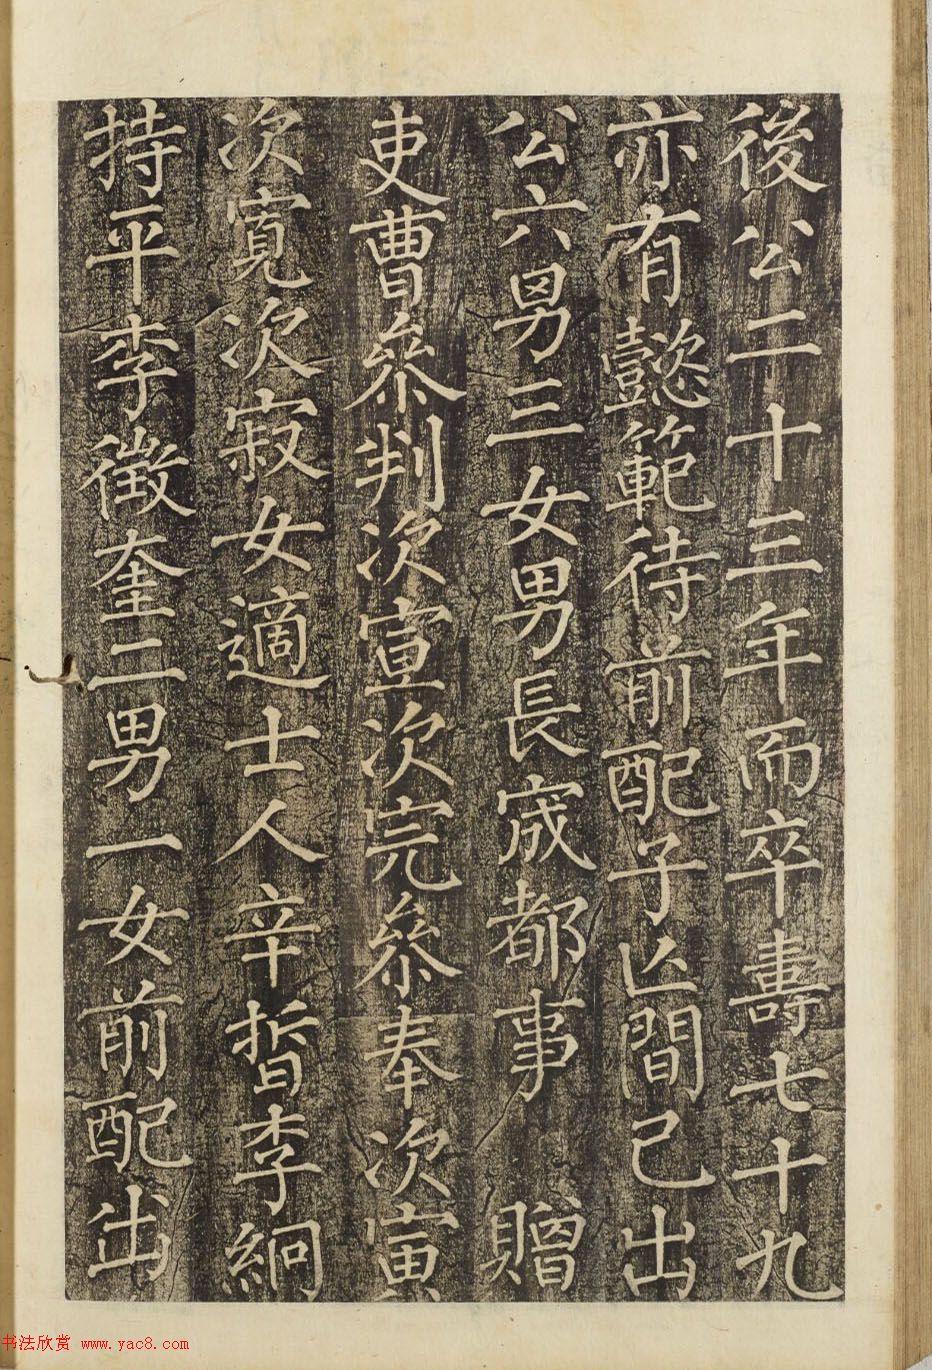 後公二十三年而卒壽七十九
亦有懿範待前配子亡間己出
公六男三女男長宬都事 贈
吏曹參判次宣次完參奉次寅
次寬次㝡女適士人辛晳李絅
持平李徵奎二男一女前配出
书法欣赏 www.yac8.com